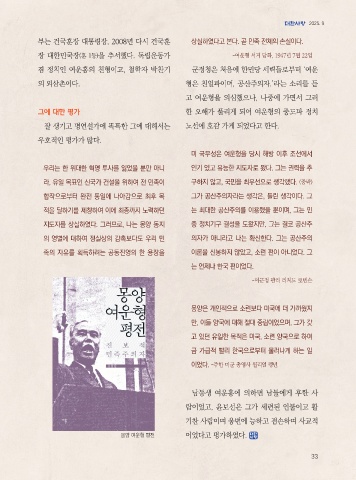 대한사랑 2025. 9
부는 건국훈장 대통령장, 2008년 다시 건국훈
장 대한민국장(훈 1등)을 추서했다. 독립운동가
겸 정치인 여운홍의 친형이고, 철학자 박진기
의 외삼촌이다.
그에 대한 평가
잘 생기고 명연설가에 똑똑한 그에 대해서는
우호적인 평가가 많다.
우리는 한 위대한 혁명 투사를 잃었을 뿐만 아니
라, 유일 목표인 신국가 건설을 위하여 전 민족이
합작으로부터 완전 통일에 나아감으로 최후 목
적을 달하기를 제창하여 이에 최종까지 노력하던
지도자를 상실하였다. 그러므로, 나는 몽양 동지
의 영별에 대하여 형실상의 감촉보다도 우리 민
족의 자유를 획득하려는 공동진영의 한 용장을
몽양
여운형
평전
진보적
민족주의자
몽양 여운형 평전
상실하였다고 본다. 곧 민족 전체의 손실이다.
-여운형 서거 담화, 1947년 7월 22일
군정청은 처음에 한민당 사력들로부터 '여운
형은 친일파이며, 공산주의자'라는 소리를 듣
고 여운형을 의심했으나, 나중에 가면서 그러
한 오해가 풀리게 되어 여운형의 중도파 정치
노선에 호감 가게 되었다고 한다.
미 국무성은 여운형을 당시 해방 이후 조선에서
인기 있고 유능한 지도자로 봤다. 그는 권력을 추
구하지 않고, 국민을 최우선으로 생각했다. (중략)
그가 공산주의자라는 생각은, 틀린 생각이다. 그
는 최대한 공산주의를 이용했을 뿐이며, 그는 민
중 정치기구 결성을 도왔지만, 그는 결코 공산주
의자가 아니라고 나는 확신한다. 그는 공산주의
이론을 신봉하지 않았고, 소련 편이 아니었다. 그
는 언제나 한국 편이었다.
-미군정 관리 리처드 로빈슨
몽양은 개인적으로 소련보다 미국에 더 기까웠지
만, 이들 양국에 대해 절대 중립이었으며, 그가 갖
고 있던 유일한 목적은 미국, 소련 양국으로 하여
금 가급적 빨리 한국으로부터 물러나게 하는 일
이었다. -주한 미군 총영사 윌리엄 랭던
남동생 여운홍에 의하면 남들에게 후한 사
람이었고, 윤보선은 그가 세련된 인물이고 활
기찬 사람이며 웅변에 능하고 겸손하며 사교적
이었다고 평가하였다.
33